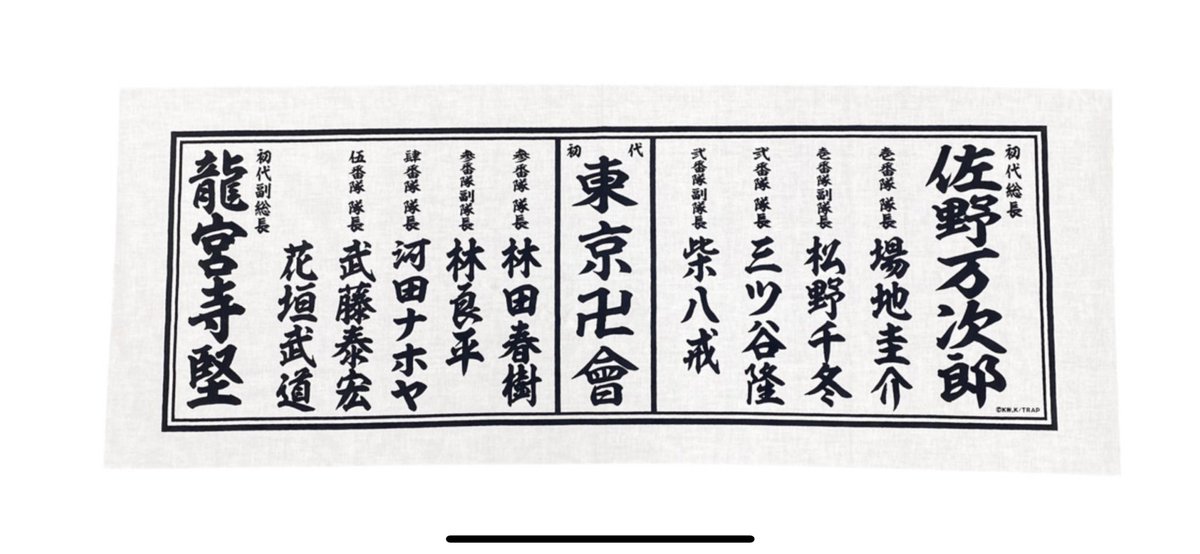 初代総長
佐野万次郎
壱番隊 隊長
場地圭介
壱番隊副隊長
松野千冬
弐番隊 隊長
三ツ谷隆
弐番隊副隊長
柴八戒
初代
東京卍會
参番隊 隊長
林田春樹
参番隊副隊長
林良平
肆番隊 隊長
河田ナホヤ
伍番隊 隊長
武藤泰宏
花垣武道
初代副総長
龍宮寺堅
©KW,K/TRAP